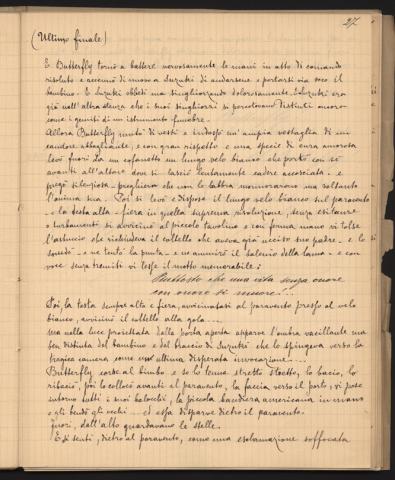 27.
(Ultimo finale)
E Butterfly tornò a battere nervosamente le mani in atto di comando
risoluto e accennò di nuovo a Suzuki di andarsene e portarsi via seco il
bambino. E Suzuki obbedì ma singhiozzando dolorosamente. E Suzuki era
già nell'altra stanza che i suoi singhiozzi si percotevano distinti ancora
come i gemiti di un istrumento funebre.
Allora Butterfly mutò di vesti e indossò un'ampia vestaglia di un
candore abbagliante, e con gran rispetto e una specie di cura amorosa
levò fuori da un cofanetto un lungo velo bianco che portò con sè
avanti all'altare dove si lasciò lentamente cadere accosciata. e
pregò silenziosa, preghiera che non le labbra mormoravano ma soltanto
l'anima sua. Poi si levò e dispose il lungo velo bianco sul paravento
e la testa alta - fiera in quella suprema risoluzione, senza esitanze
e turbamenti si avvicinò al piccolo tavolino e con ferma mano vi tolse
l'astuccio che richiudeva il coltello che aveva già ucciso suo padre - e lo
snudò - e ne tentò la punta - e ne ammirò il salcio della lama - e con
voce senza tremiti vi lesse il motto memorabile:
Piuttosto che una vita senza onore
con onore si muore!
Poi la testa sempre alta e fiera, avvicinatasi al paravento presso al velo
bianco, avvicinò il coltello alla gola....
ma nella luce proiettata dalla porta aperta apparve l'ombra vacillante ma
ben distinta del bambino e del braccio di Suzuki che lo spingeva verso la
tragica camera come ultima disperata invocazione....
Butterfly corse al bimbo e se lo tenne stretto stretto, lo baciò, lo
ribaciò, poi lo collocò avanti al paravento, la faccia verso il porto, vi pose
intorno tutti i suoi balocchi, la piccola bandiera americana in mano
e gli bendò gli occhi - ed essa disparve dietro il paravento.
Fuori, dall'alto guardavano le stelle.
E si sentì, dietro al paravento, come una esclamazione soffocata